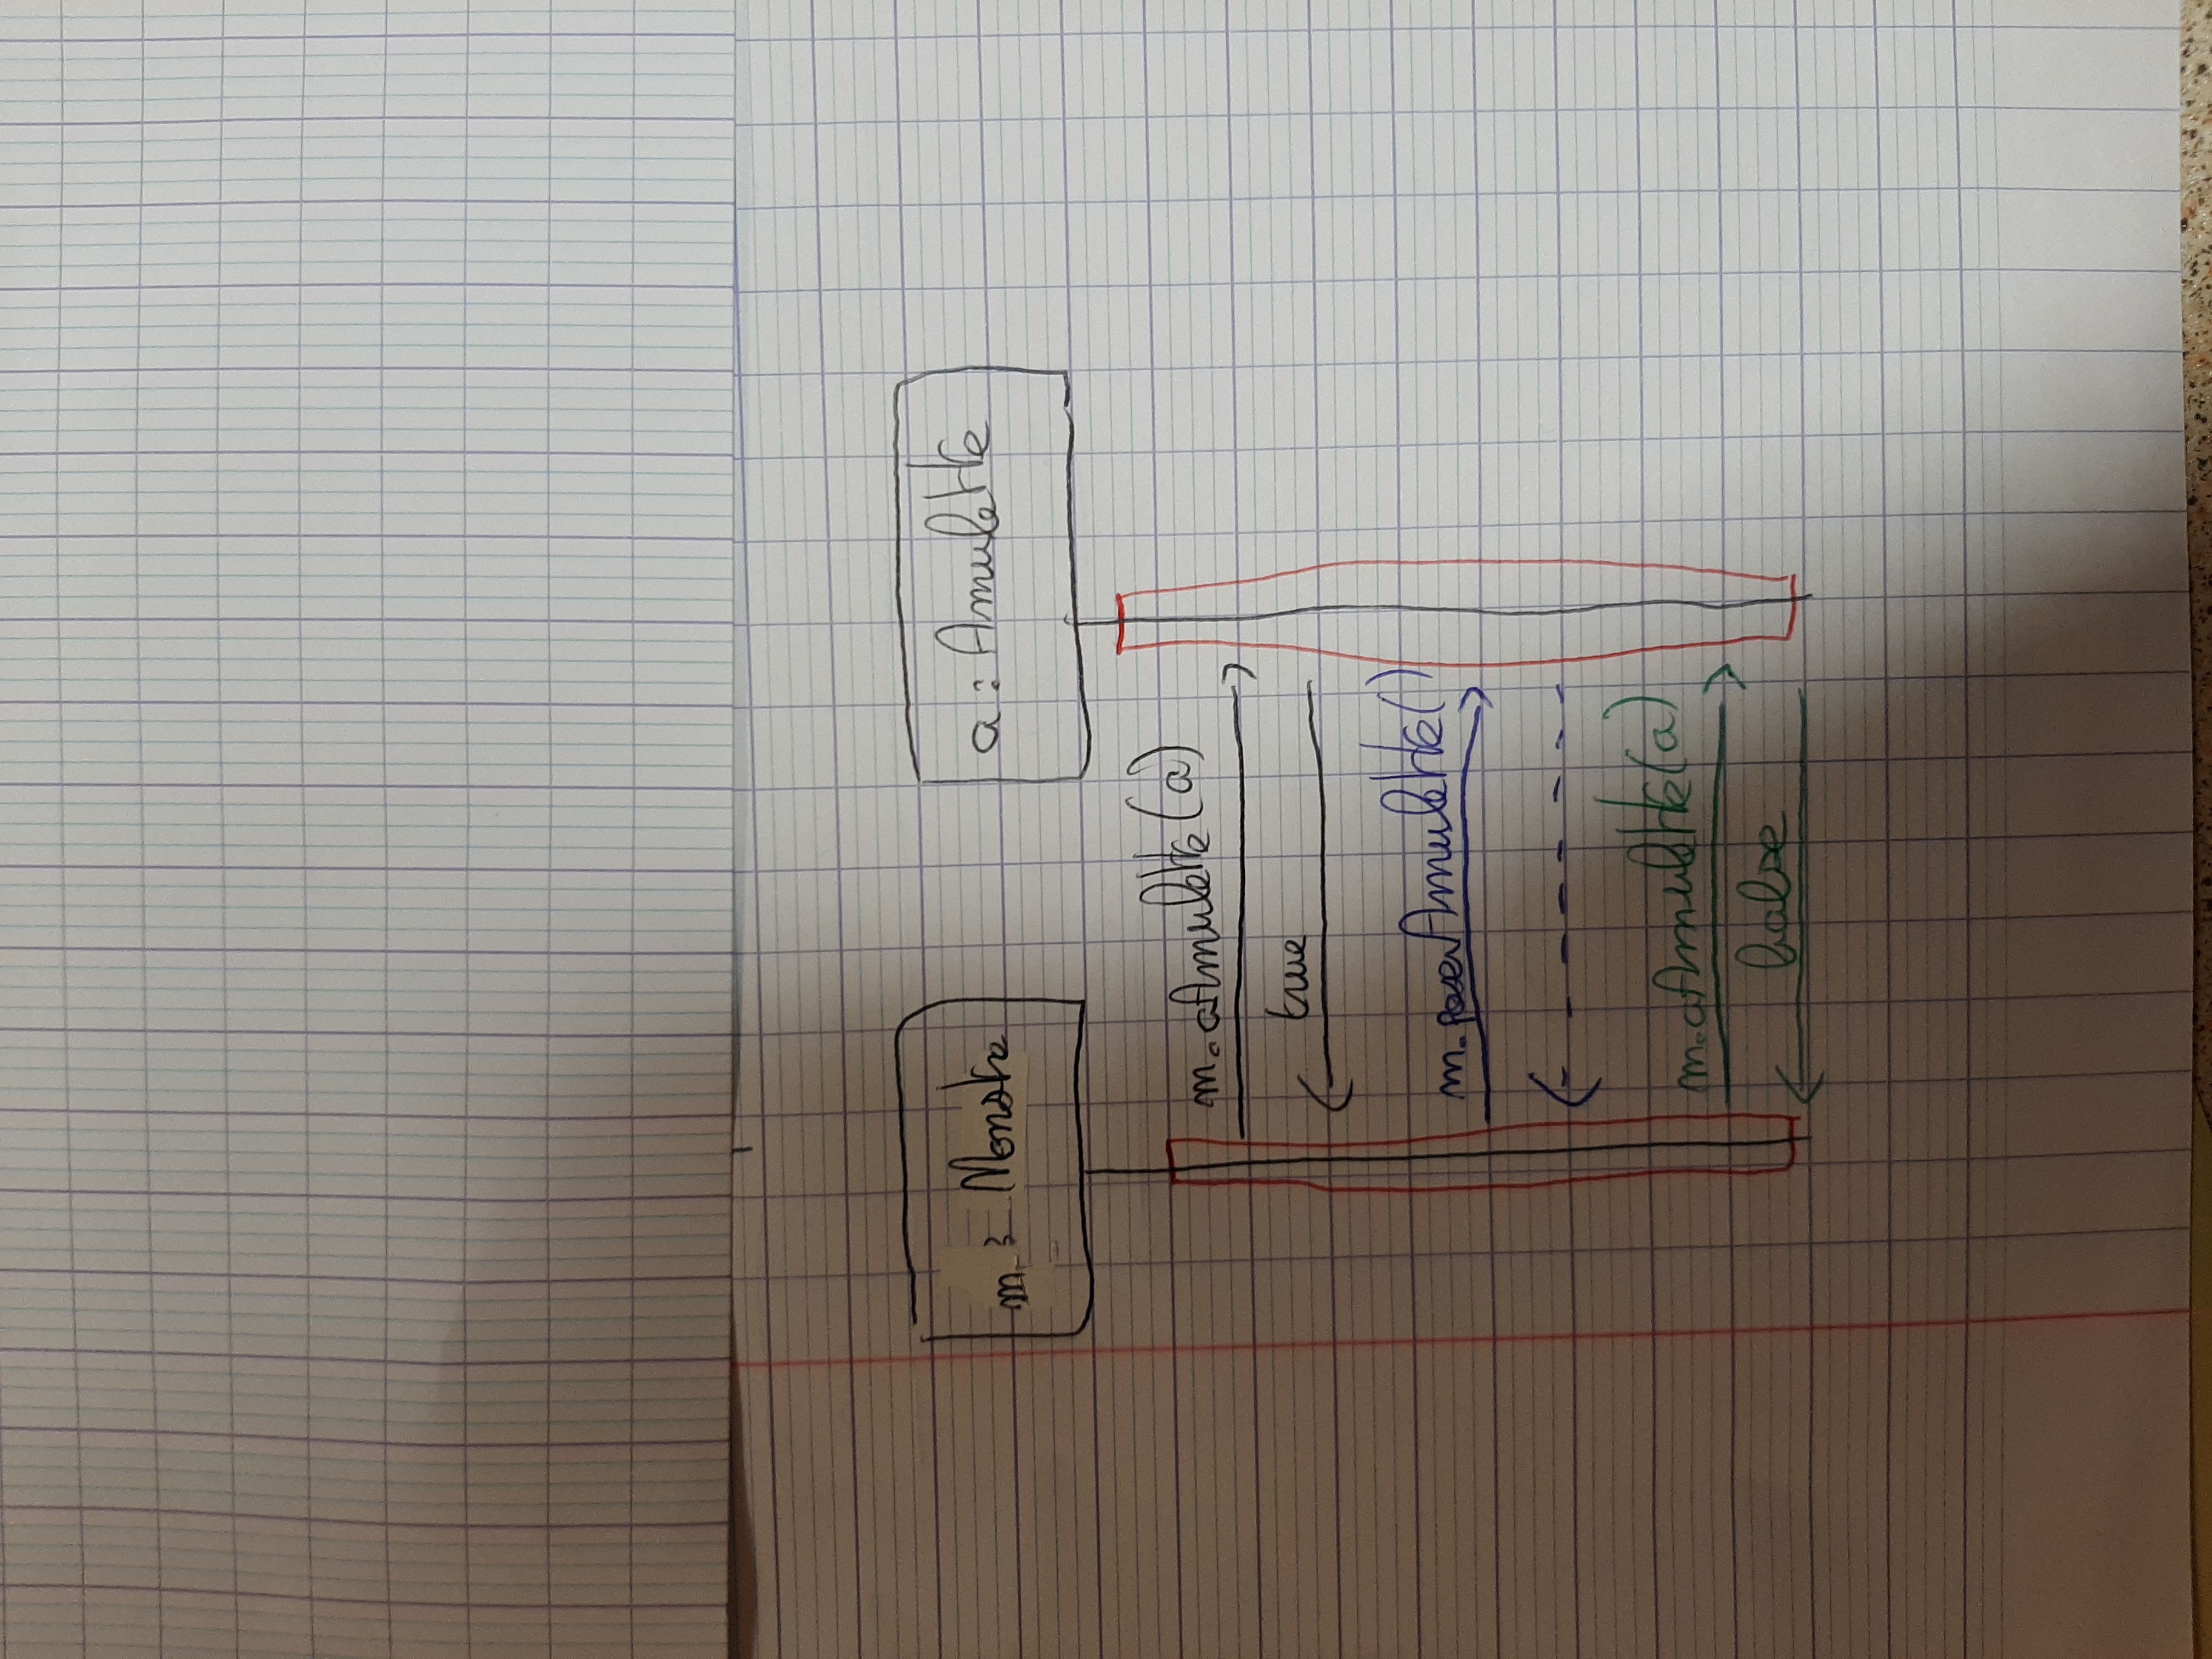 m : Monstre
a : Amulette
m.aAmulette(a)
true
m.poserAmulette()
m.aAmulette(a)
false